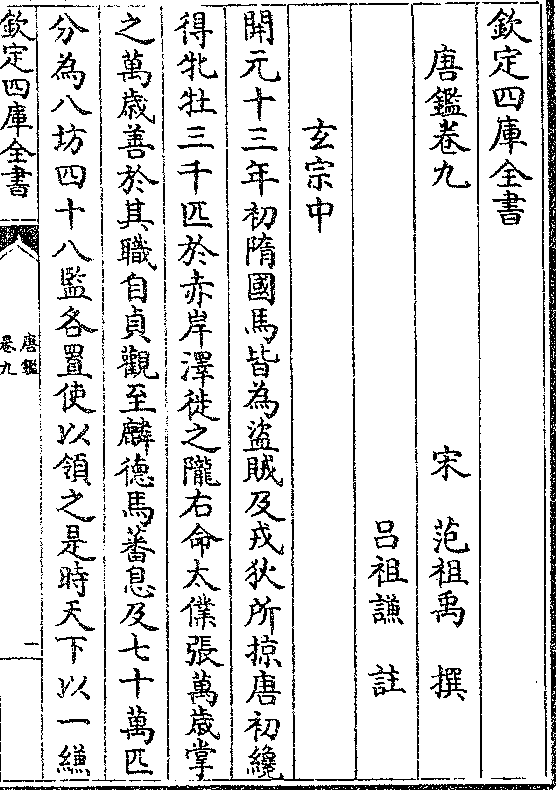 欽定四庫全書
唐鑑卷九
宋 范祖禹 撰
呂祖謙 註
玄宗中
開元十三年初隋國馬皆為盜賊及戎狄所掠唐初纔
得牝牡三千匹於赤岸澤徙之隴右命太僕張萬歲掌
之萬歲善於其職自貞觀至麟德馬蕃息及七十萬匹
分為八坊四十八監各置使以領之是時天下以一縑
欽定四庫全書
唐鑑
卷九
一